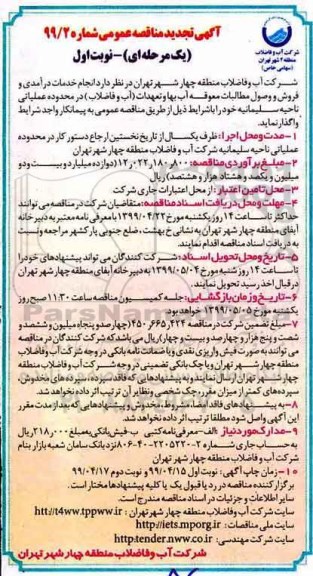 آگهی تجدید مناقصه عمومی شماره ۹۹/۲
(یک مرحله‌ای) - نوبت اول
شرکت آب و فاضلاب
منطقه ۴ شهر تهران
(سهامی خاص)
شرکت آب و فاضلاب منطقه چهار شهر تهران در نظر دارد انجام خدمات درآمدی و
فروش و وصول مطالبات معوقه آب بها و تعهدات (آب و فاضلاب) در محدوده عملیاتی
ناحیه سلیمانیه خود را با شرایط ذیل از طریق مناقصه عمومی به پیمانکار واجد شرایط
واگذار نماید.
۱- مدت و محل اجرا: ظرف یکسال از تاریخ نخستین ارجاع دستور کار در محدوده
عملیاتی ناحیه سلیمانیه شرکت آب و فاضلاب منطقه چهار شهر تهران
۲- مبلغ برآوردی مناقصه: ۱۲,۰۲۲,۱۸۰,۸۰۰ (دوازده میلیارد و بیست و دو
میلیون و یکصد و هشتاد هزار و هشتصد) ریال
۳- محل تامین اعتبار: از محل اعتبارات جاری شرکت
۴- مهلت و محل دریافت اسناد مناقصه: متقاضیان شرکت در مناقصه می توانند
حداکثر تا ساعت ۱۴ روز یکشنبه مورخ ۱۳۹۹/۰۴/۲۲ با معرفی نامه معتبر به دبیرخانه
آبفای منطقه چهار شهر تهران به نشانی خ بهشت، ضلع جنوبی پارکشهر مراجعه و نسبت
به دریافت اسناد مناقصه اقدام نمایند.
۵- تاریخ و محل تحویل اسناد: شرکت کنندگان می تواند پیشنهادهای خود را
تا ساعت ۱۴ روز شنبه مورخ ۱۳۹۹/۰۵/۰۴ به دبیرخانه آبفای منطقه چهار شهر تهران
در قبال اخذ رسید تحویل نمایند.
۶- تاریخ و زمان بازگشایی: جلسه کمیسیون مناقصه ساعت ۱۱:۳۰ صبح روز
یکشنبه مورخ ۱۳۹۹/۰۵/۰۵ خواهد بود.
۷- مبلغ تضمین شرکت در مناقصه ۴۵۰,۶۶۵,۴۲۴ (چهارصد و پنجاه میلیون و ششصد و
شصت و پنج هزار و چهارصد و بیست و چهار) ریال می باشد که شرکت کنندگان در مناقصه
می توانند به صورت فیش واریزی نقدی و یا ضمانت نامه بانکی در وجه شرکت آب و فاضلاب
منطقه چهار شهر تهران و یا چک بانکی تضمینی در وجه شرکت آب و فاضلاب منطقه
چهار شهر تهران ارسال نمایند و به پیشنهادهایی که فاقد سپرده، سپرده های مخدوش،
سپرده های کمتر از میزان مقرر، چک شخصی و نظایر آن ترتیب اثر داده نخواهد شد.
۸- به پیشنهادهای فاقد امضا، مشروط، مخدوش و پیشنهادهایی که بعد از مدت مقرر
این آگهی واصل شود مطلقا ترتیب اثر داده نخواهد شد.
۹- مدارک مورد نیاز: الف- معرفی نامه کتبی ب- فیش بانکی به مبلغ ۲۱۸,۰۰۰ ریال
به حساب جاری شماره نزد بانک سامان شعبه بازار بنام
شرکت آب و فاضلاب منطقه چهار شهر تهران
۱۰- زمان چاپ آگهی: نوبت اول ۹۹/۰۴/۱۵ و نوبت دوم ۹۹/۰۴/۱۷
برگزار کننده مناقصه در رد یا قبول یک یا کلیه پیشنهادها مختار است.
سایر اطلاعات و جزئیات در اسناد مناقصه مندرج است.
سایت شرکت آب و فاضلاب منطقه چهار شهر تهران: htt://t4ww.tppww.ir
سایت ملی مناقصات: http://iets.mporg.ir
سایت شرکت مهندسی: http:tender.nww.co.ir
شرکت آب و فاضلاب منطقه چهار شهر تهران